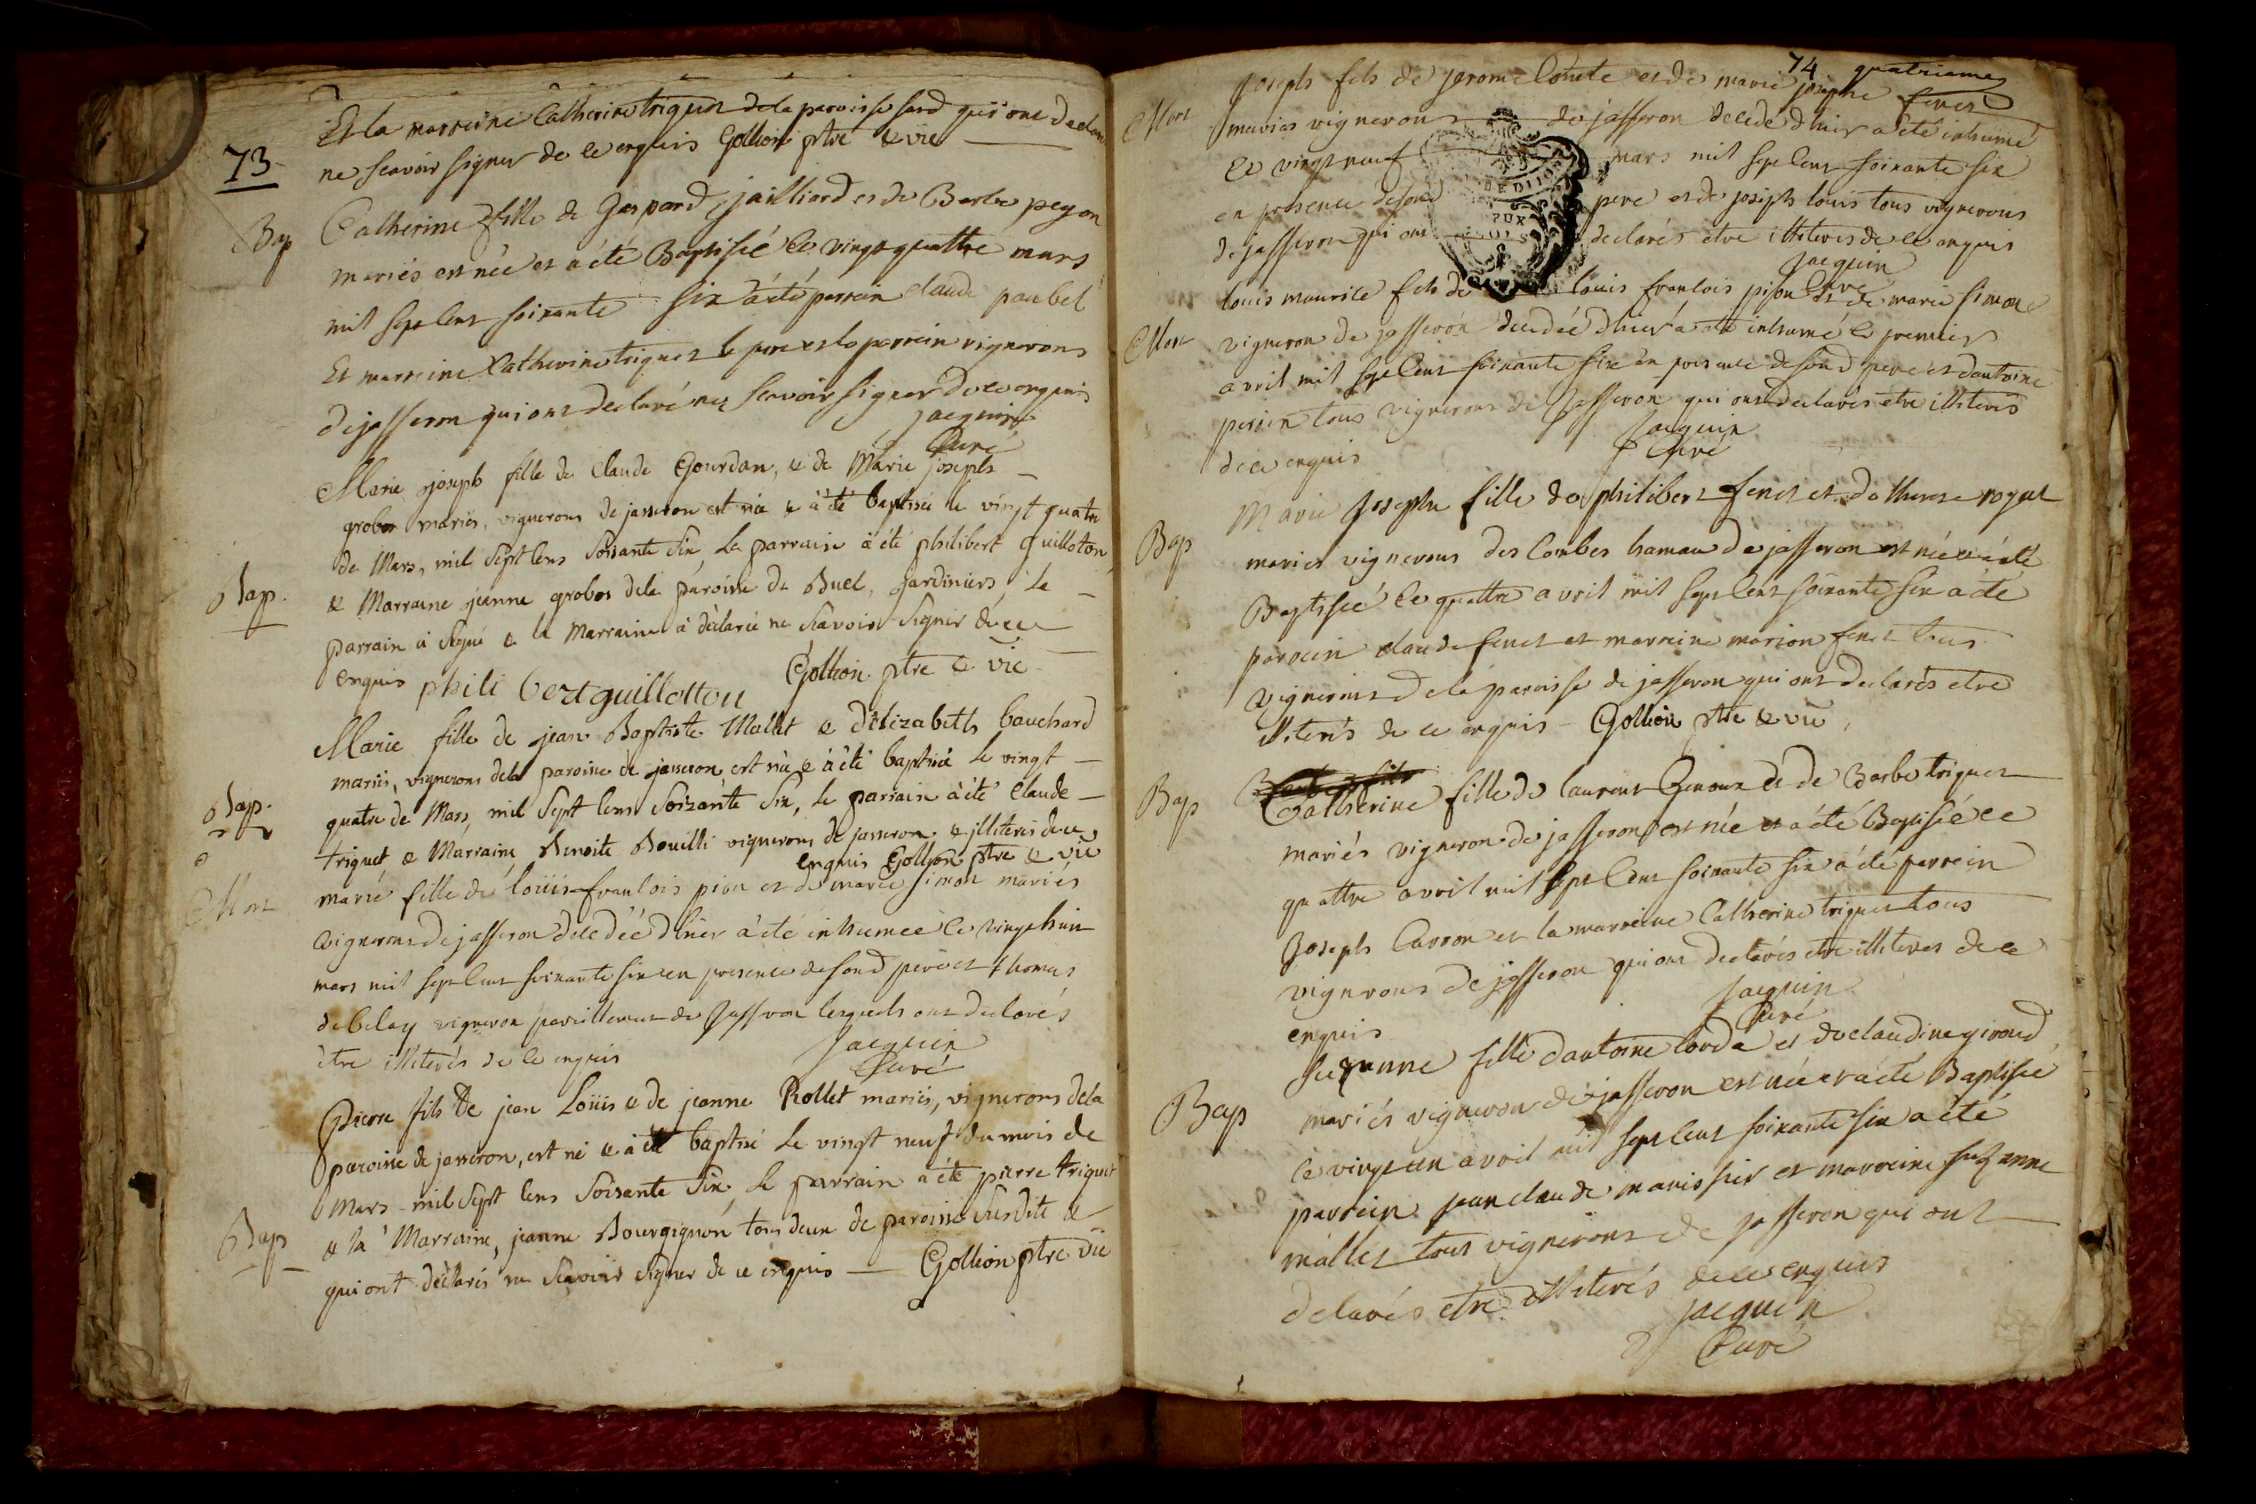 73
Et la marreine Catherine triquet de la paroisse susd qui ont declare
ne scavoir signer de ce enquis Gollion ptre & vic
Bap
Catherine fille de Gaspard jailliard et de Barbe pegon
mariés est née et a été Baptisée le vingt quattre mars
mil sept cent soixante six a été parrein claude paubel
Et marreine Catherine triquet le pere et le parrein vignerons
de jasseron qui ont declaré ne scavoir signer de ce enquis
jacquin
Curé
Bap.
Marie joseph fille de Claude Gourdan, & de Marie joseph
grobos mariés, vignerons de jasseron est née & a été baptisée le vingt quatre
de Mars, mil Sept Cens Soixante Six, Le parrain à été philibert guilloton
& Marraine jeanne grobos dela paroisse de Buel, jardiniers, Le
parrain à signé & la Marraine à déclaré ne Scavoir Signer de ce
enquis phili bert guillotton Gollion ptre & vic
Bap.
Marie fille de jean Baptiste Mallet & D'elizabeth bauchard
mariés, vignerons dela paroisse de jasseron, est née & à été baptisée Le vingt
quatre de Mars, mil Sept Cens Soixante Six, Le parrain à été Claude
triquet & Marraine Benoite Bouilli vignerons de jasseron & illiterés de ce
enquis Gollion ptre & vic
Mort
marie fille de louis francois pion et de marie simon mariés
vignerons de jasseron decedée d hier à été inhumée le vingt huit
mars mil sept cent soixante six en presence de son d pere et thomas
debelay vigneron pareillement de Jasseron lesquels ont declarés
être illiterés de ce enquis
jacquin
Curé
Bap
Pierre fils de jean Loüis & de jeanne Rollet mariés, vignerons dela
paroisse de jasseron, est né & à été baptisé Le vingt neuf du mois de
Mars mil Sept Cens Soixante Six, Le parrain à été pierre triquet
& la Marraine, jeanne Bourgignon tous deux de paroisse Susdite &
qui ont déclarés ne Scavoir Signer de ce enquis Gollion ptre vic
74 quatrieme
Mort
Joseph fils de jerome Conte et de marie josephe feret
mariés vignerons de jasseron decedé d hier a été inhumé
le vingt neuf mars mil sept cent soixante six
en presence de son d pere et de joseph louis tous vignerons
de jasseron qui ont declarés etre illiterés de ce enquis
jacquin
Curé
Mort
louis maurice fils de louis francois pion et de marie simon
vigneron de jasseron decedée d hier a été inhumé le premier
avril mil sept cent soixante six en presence de son d pere et d antoine
perrin tous vignerons de Jasseron qui ont declarés etre illiterés
de ce enquis
Jacquin
Curé
Bap
Marie Josephe fille de philibert feret et de therese royet
mariés vignerons des Combes hameau de jasseron est née et a été
Baptisée le quattre avril mil sept cent soixante six a été
parrein claude feret et marreine marion feret tous
vignerons de la paroisse de jasseron qui ont declarés etre
illiterés de ce enquis Gollion ptre & vic
Bap
Catherine fille de laurent Genoux et de Barbe triquet
mariés vigneron de jasseron est née et a été Baptisée le
quattre avril mil sept cent soixante six a été parrein
Joseph Carron et la marreine Catherine triquet tous
vignerons de jasseron qui ont declarés etre illiterés de ce
enquis
jacquin
Curé
Bap
Suzanne fille d antoine Corda et de claudine giroud
mariés vigneron de jasseron est née et a été Baptisée
le vingt un avril mil sept cent soixante six a été
parrein jean claude manissier et marreine suzanne
mallet tous vignerons de jasseron qui ont
declarés etre illiterés de ce enquis
jacquin
Curé